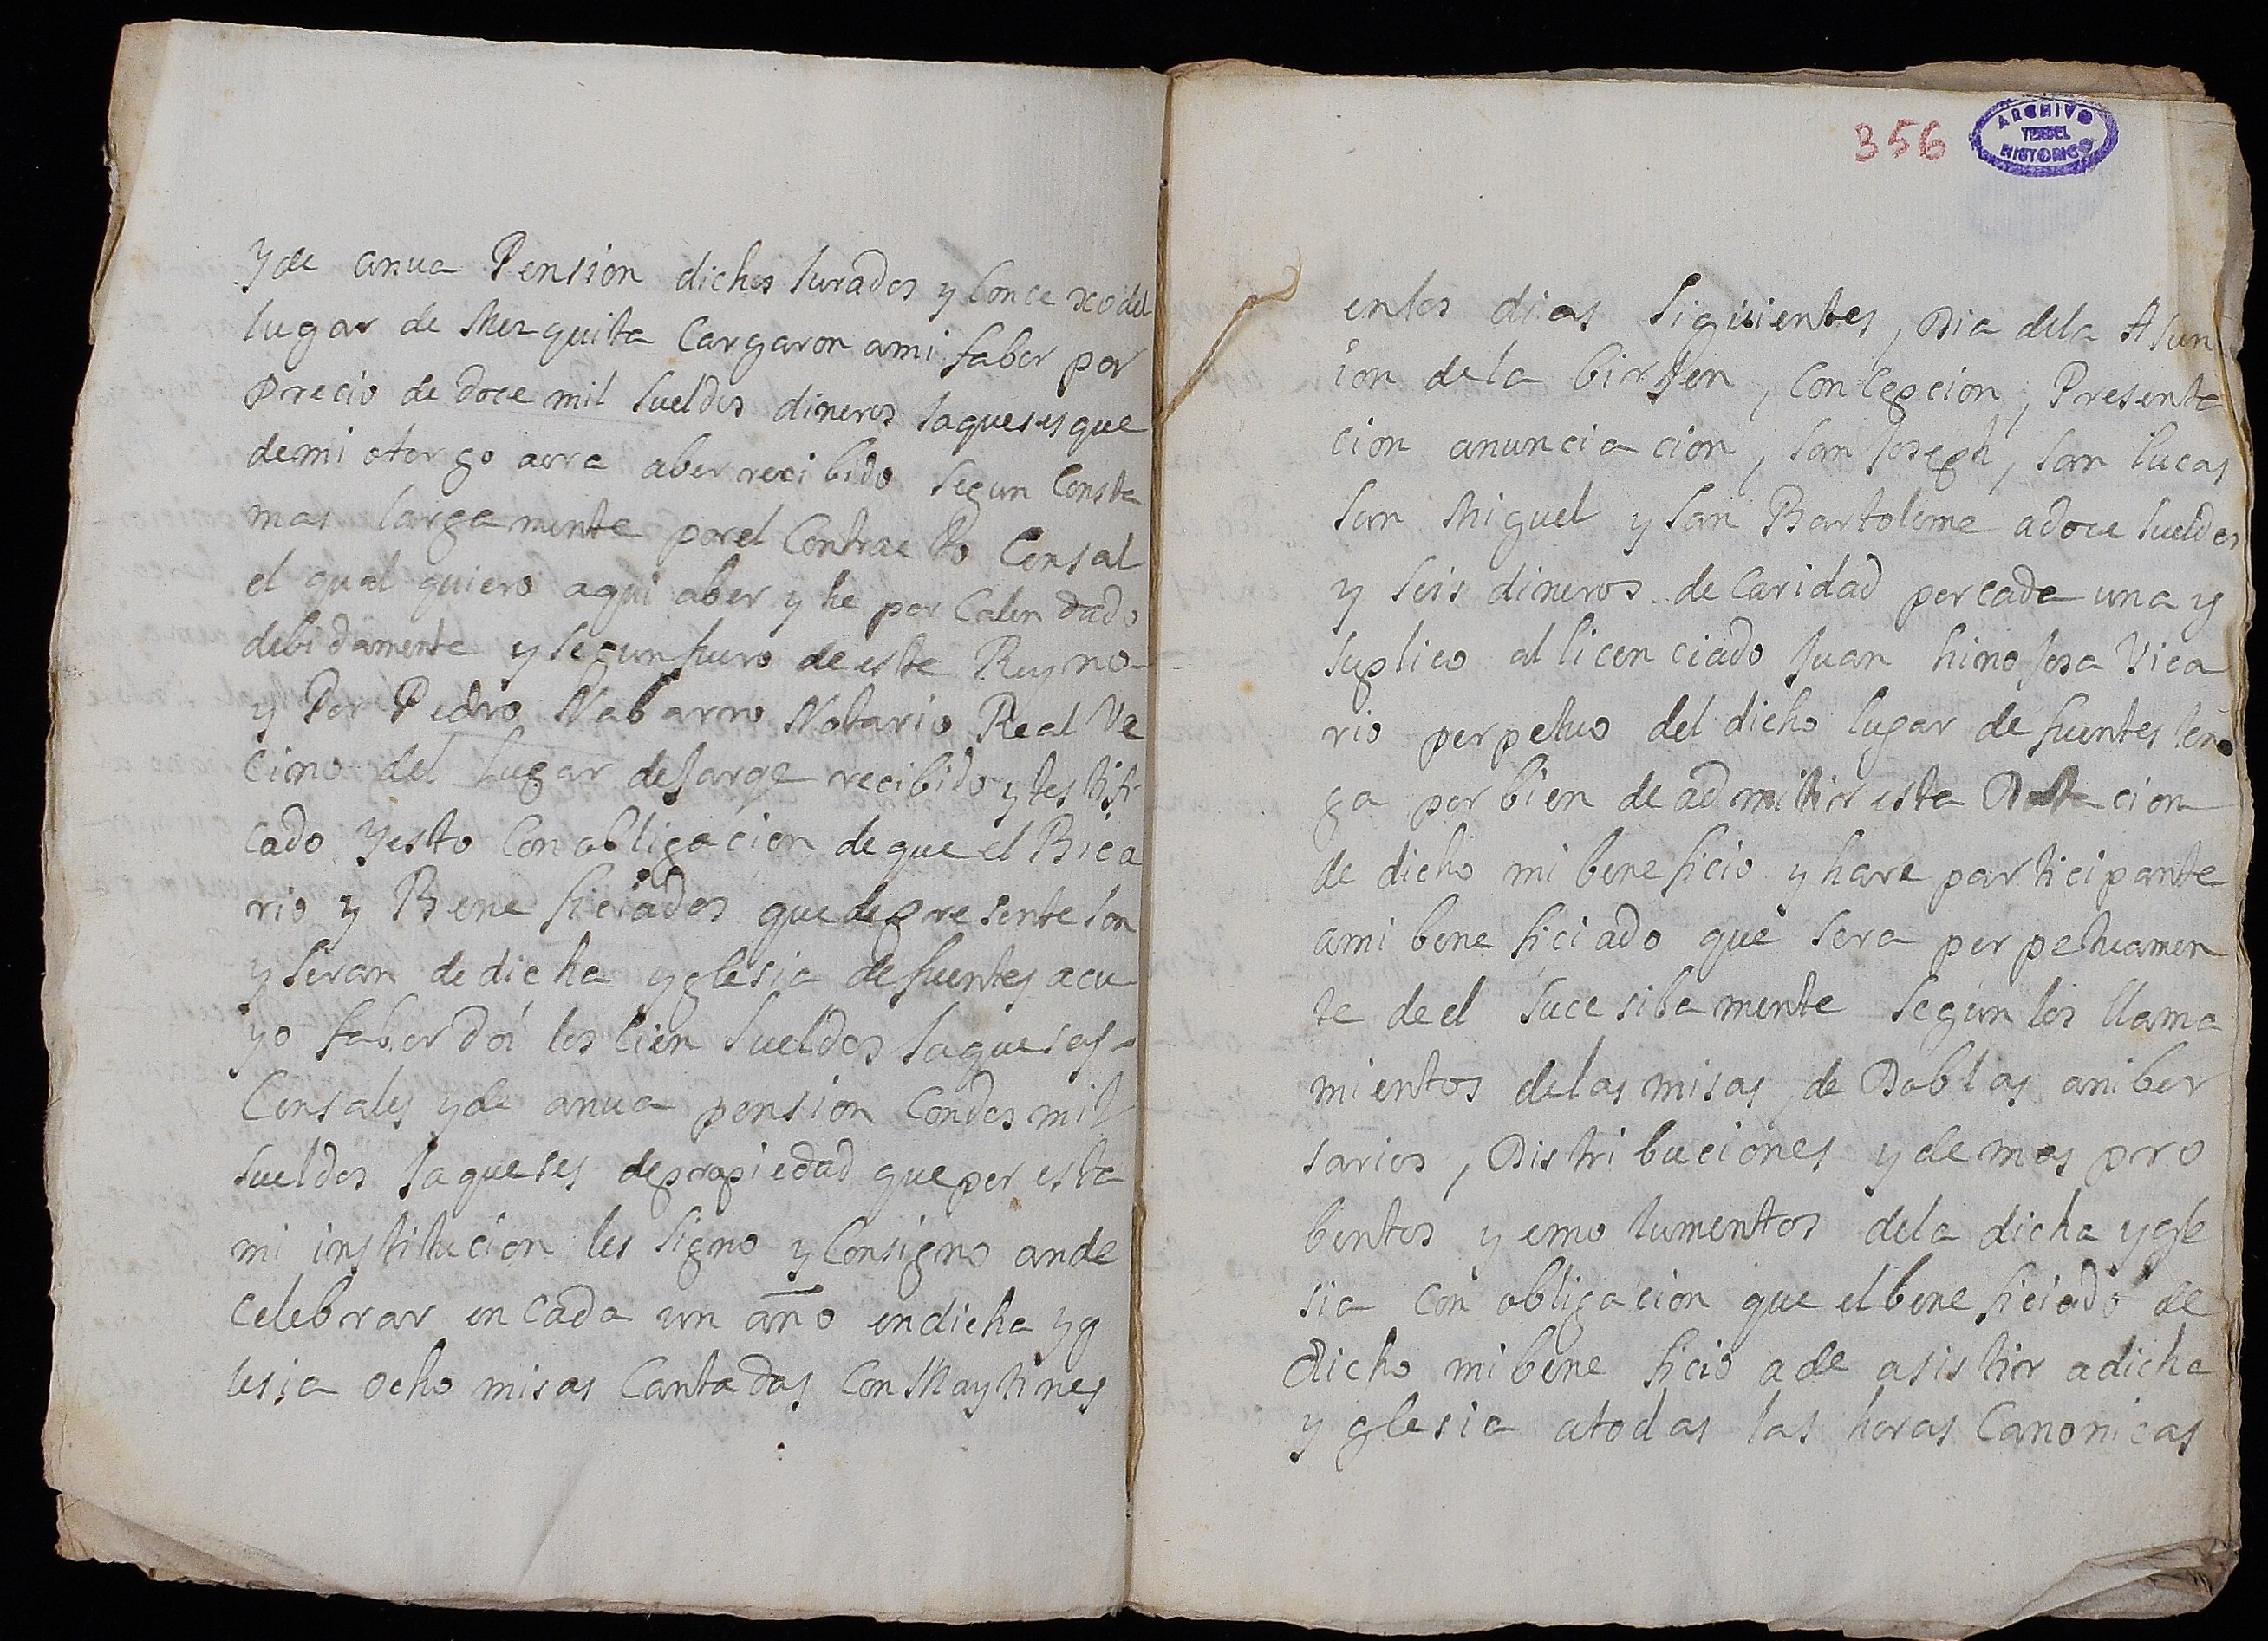 y de anua Pension dichos Jurados y Concexo del
lugar de Mezquita Cargaron ami fabor por
Precio de doce mil sueldos dineros Jaqueses que
demi otorgo aora aber recibido segun Consta
mas largamente por el Contracto Censal
el qual quiero aqui aber y he por Calendado
debidamente y segun fuero de este Reyno
y Por Pedro Nabarro Notario Real Ve
cino del Lugar de Jarqe recibido y testifi
cado Y esto Con obligacion de que el Bica
rio y Beneficiados que de presente son
y seran de dicha yglesia de fuentes a cu
yo fabor doi los Cien sueldos Jaqueses
Censales y de anua pension Con dos mil
sueldos Jaqueses de propiedad que por esta
mi institucion les signo y Consigno an de
celebrar en Cada un año en dicha yg
lesia ocho misas Cantadas Con Maytines
356
ARCHIVO
TERUEL
HISTORICO
en los dias siguientes, Dia dela Asun
ion dela birJen, Concepcion, Presenta
cion anunciacion, San Joseph, San lucas
San Miguel y San Bartolome a doce sueldos
y seis dineros de Caridad por cada una y
suplico al licenciado Juan hinoJosa Vica
rio perpetuo del dicho lugar de fuentes ten
ga por bien de admitir esta Dotacion
de dicho mi beneficio y hare participante
ami beneficiado que sera perpetuamen
te de el sucesibamente segun los llama
mientos delas misas, de Doblas aniber
sarios, Distribuciones y demas pro
bentos y emolumentos dela dicha ygle
sia con obligacion que el beneficiado de
dicho mi beneficio a de asistir a dicha
yglesia a todas las horas Canonicas